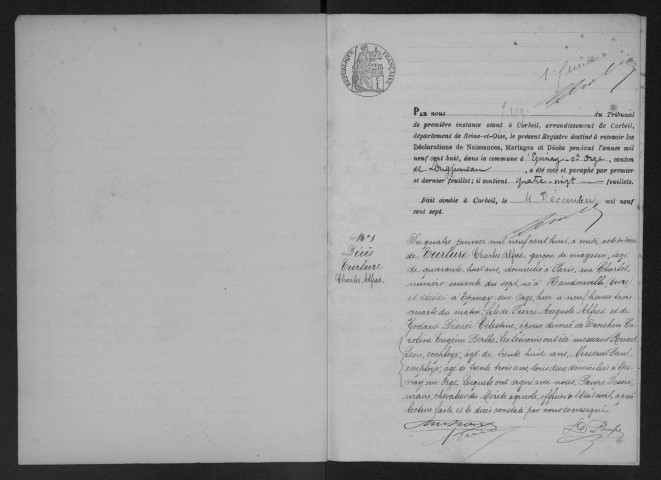 RÉPUBLIQUE FRANÇAISE
1er feuillet
PAR nous Juge du Tribunal
de première instance séant à Corbeil, arrondissement de Corbeil,
département de Seine-et-Oise, le présent Registre destiné à recevoir les
Déclarations de Naissances, Mariages et Décès pendant l'année mil
neuf cent huit, dans la commune d'Epinay-s-Orge, canton
de Longjumeau, a été coté et paraphé par premier
et dernier feuillet; il contient quatre-vingt feuillets.
Fait double à Corbeil, le 4 Décembre mil neuf
cent sept.
N° 1
Décès
Turlure
Charles Alfred
Du quatre janvier mil neuf cent huit, à midi, acte de décès
de Turlure Charles Alfred, garçon de magasin, âgé
de quarante huit ans, domicilié à Paris, rue
numéro soixante dix sept, né à
et décédé à Epinay-sur-Orge, hier à neuf heures trois
quarts du matin, fils de Pierre Auguste Alfred et de
Godard Désirée Célestine, époux divorcé de
Caroline Eugénie Berthe. Les témoins ont été messieurs
Léon, employé, âgé de trente huit ans, Paul
employé, âgé de trente trois ans, tous deux domiciliés à Epi-
nay sur Orge, lesquels ont signé avec nous,
maire, chevalier du Mérite agricole, officier de l'état civil, après
lecture faite et le décès constaté par nous soussigné.